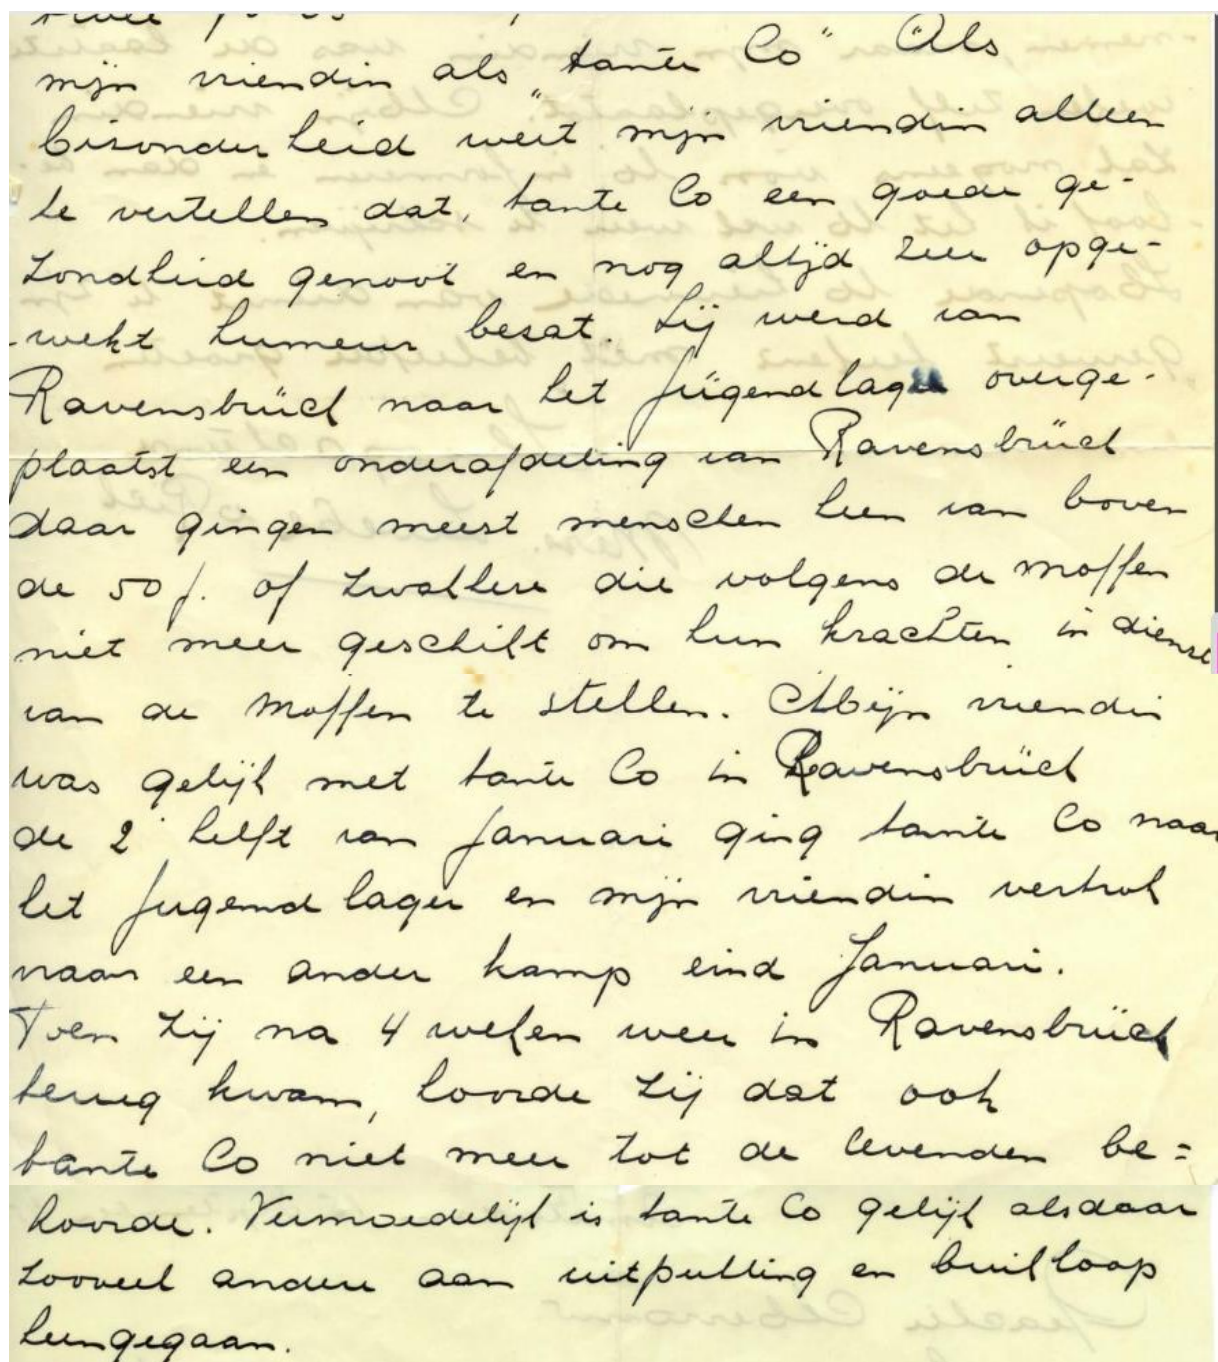 mijn vriendin als „tante Co" Als
bisonderheid weet mijn vriendin alleen
te vertellen dat, tante Co een goede ge-
zondheid genoot en nog altijd zeer opge-
-wekt humeur bezat. Zij werd van
Ravensbrück naar het Jügendlager overge-
plaatst een onderafdeling van Ravensbrück
daar gingen meest menschen heen van boven
de 50 j. of zwakkere die volgens de moffen
niet meer geschikt om hun krachten in dienst
van de moffen te stellen. Mijn vriendin
was gelijk met tante Co in Ravensbrück
de 2e helft van Januari ging tante Co naar
het Jugendlager en mijn vriendin vertrok
naar een ander kamp eind Januari.
Toen zij na 4 weken weer in Ravensbrück
terug kwam, hoorde zij dat ook
tante Co niet meer tot de levenden be=
hoorde. Vermoedelijk is tante Co gelijk aldaar
zooveel andere aan uitputting en buikloop
heengegaan.